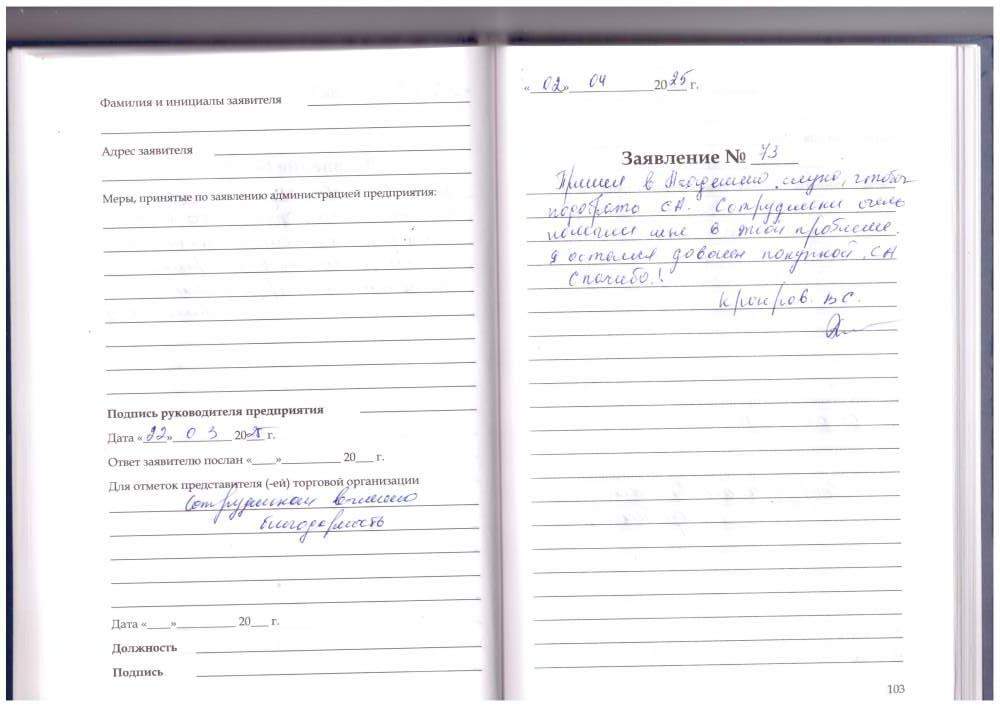 Фамилия и инициалы заявителя
Адрес заявителя
Меры, принятые по заявлению администрацией предприятия:
Подпись руководителя предприятия
Дата «22» 03 2025 г.
Ответ заявителю послан «____»__________ 20___ г.
Для отметок представителя (-ей) торговой организации
Сотрудникам
благодарность
Дата «____»__________ 20___ г.
Должность
Подпись
«02» 04 2025 г.
Заявление № 73
Пришел в Академию слуха, чтобы
подобрать СА. Сотрудники очень
помогли мне в этой проблеме.
Я остался доволен покупкой СА
Спасибо!
В.С.
103